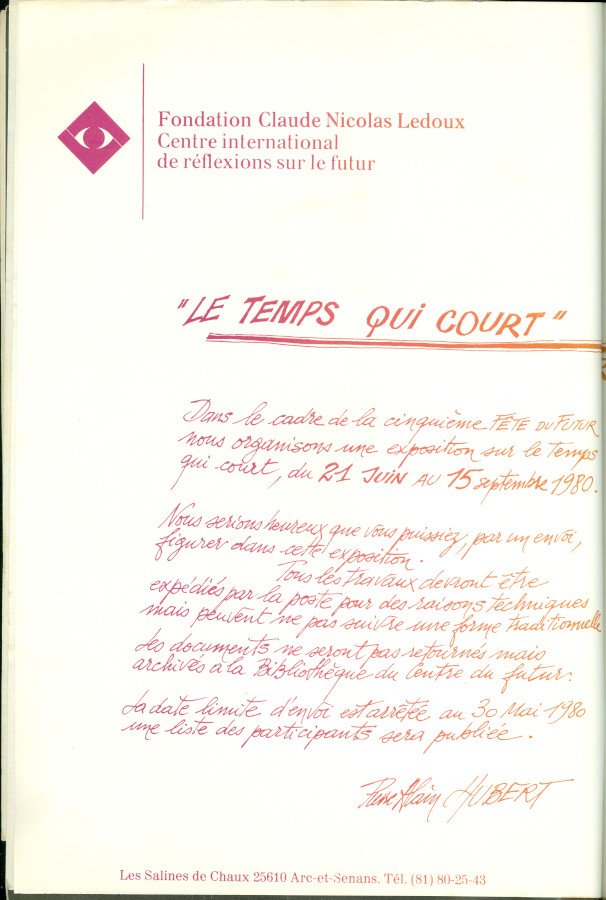 Fondation Claude Nicolas Ledoux
Centre international
de réflexions sur le futur
"LE TEMPS QUI COURT"
Dans le cadre de la cinquième FÊTE DU FUTUR
nous organisons une exposition sur le temps
qui court, du 21 JUIN AU 15 septembre 1980.
Nous serions heureux que vous puissiez, par un envoi,
figurer dans cette exposition.
Tous les travaux devront être
expédiés par la poste pour des raisons techniques
mais peuvent ne pas suivre une forme traditionnelle
Les documents ne seront pas retournés mais
archivés à la Bibliothèque du Centre du futur.
La date limite d'envoi est arrêtée au 30 Mai 1980
une liste des participants sera publiée.
Pierre Alain HUBERT
Les Salines de Chaux 25610 Arc-et-Senans. Tél. (81) 80-25-43